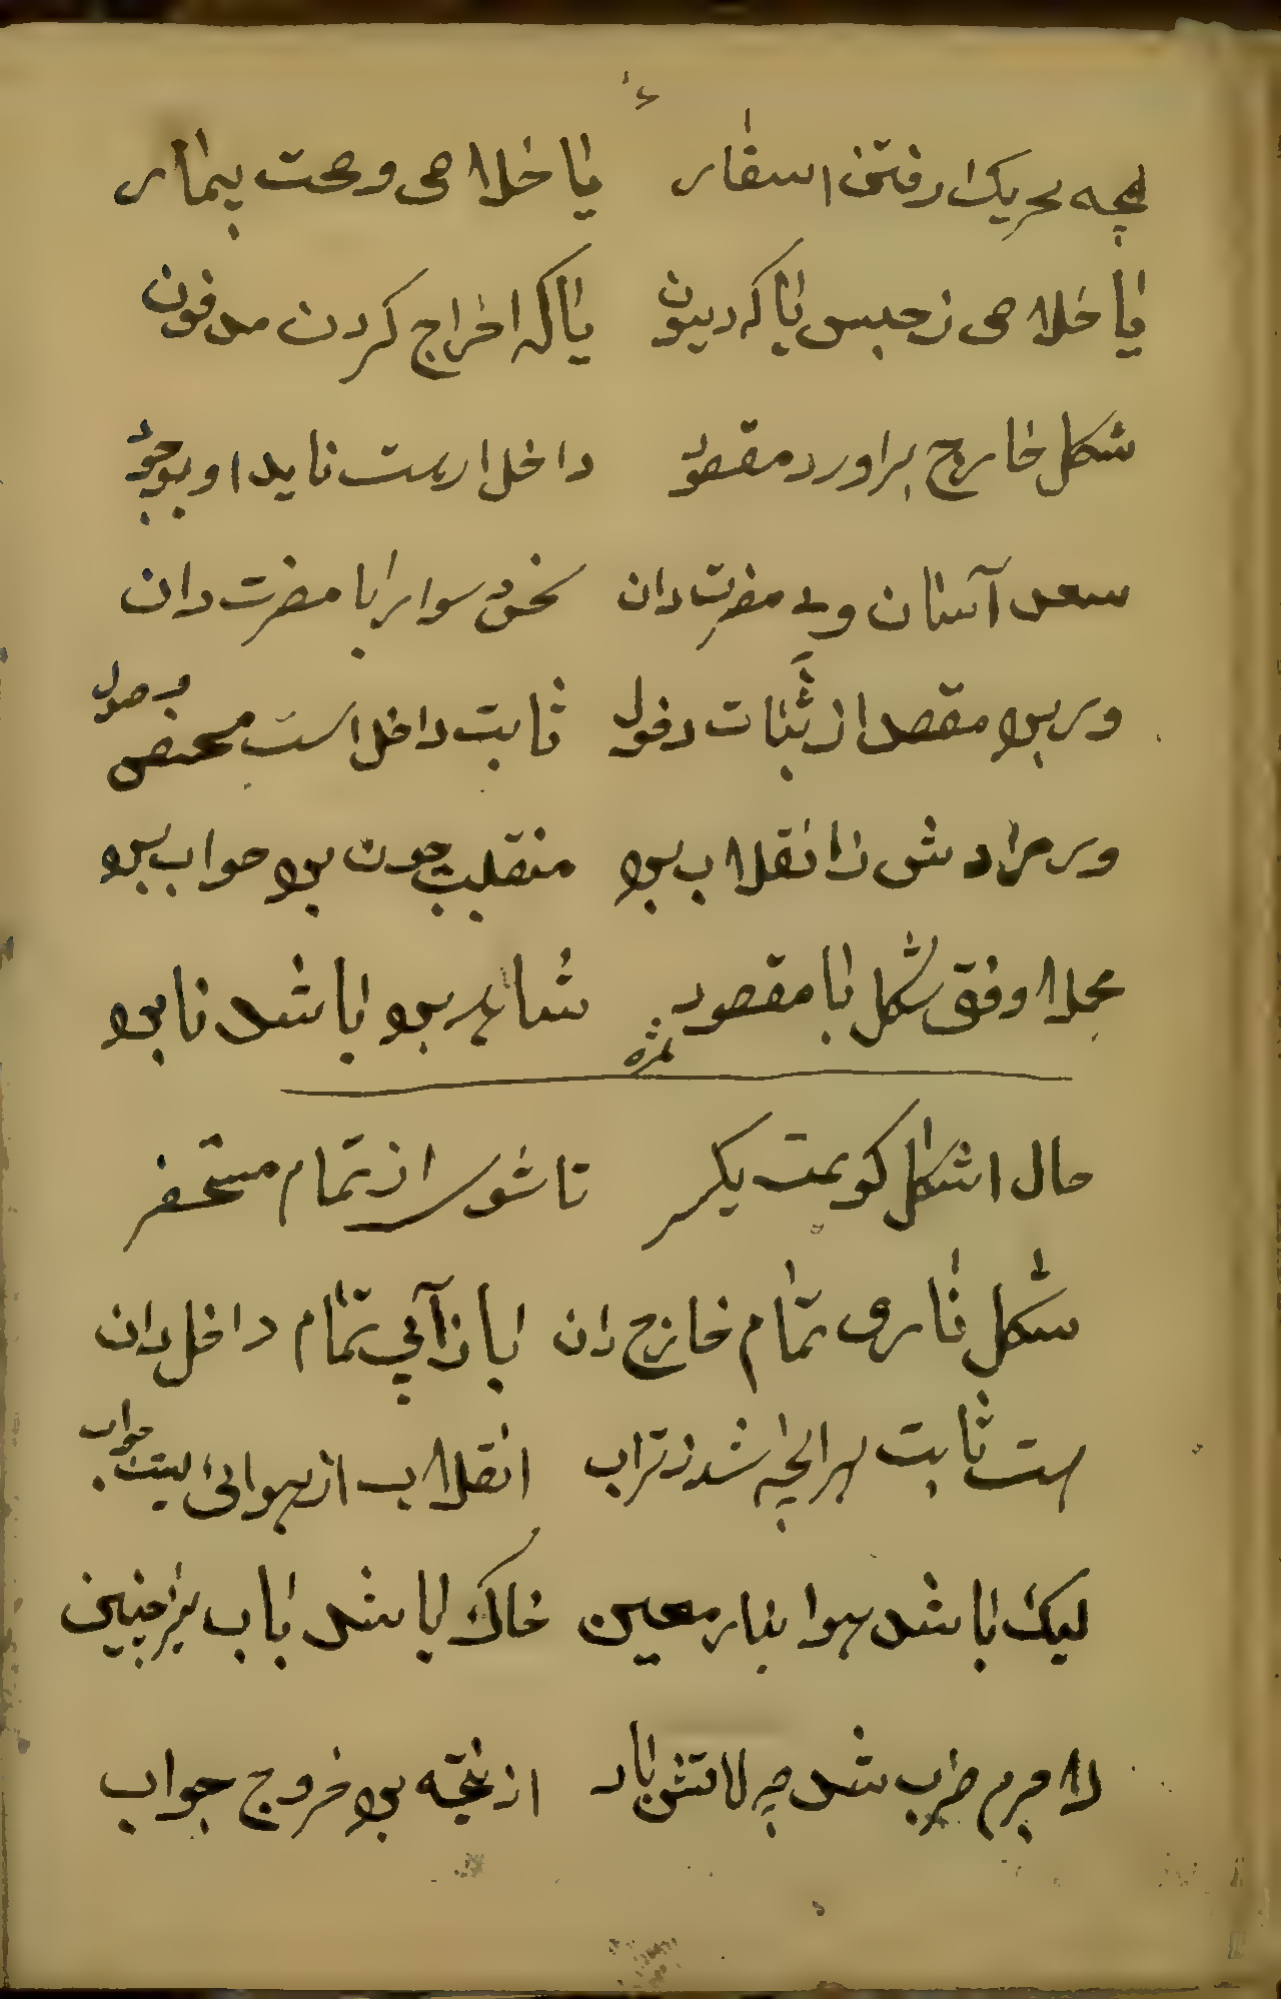 یا خلاصی و صحت بیمار
یا خلاصی ز حبس یا که دیون یا که اخراج کردن مدفون
شکل خارج براورد مقصود داخل ار هست ناید او بوجود
سعد آسان و بی مضرت دان نحس دسوار با مضرت دان
ور بود مقصد از ثبات دخول ثابت داخل است محض حصول
ور مرادش ز انقلاب بود منقلب چون بود صواب بود
مجلا وفق شکل با مقصود شاهد بود باشد نابود
ثمره
حال اشکال کویمت یکسر تا شوی از تمام مستحضر
شکل ناری تمام خارج دان باز آبی تمام داخل دان
هست ثابت هرانچه شد ز تراب انقلاب از هوائی است جواب
لیک باشد هوا بنار معین خاک باشد باب نیز چنین
لا جرم ضرب شد چه لا تش باد از نتیجه بود خروج جواب